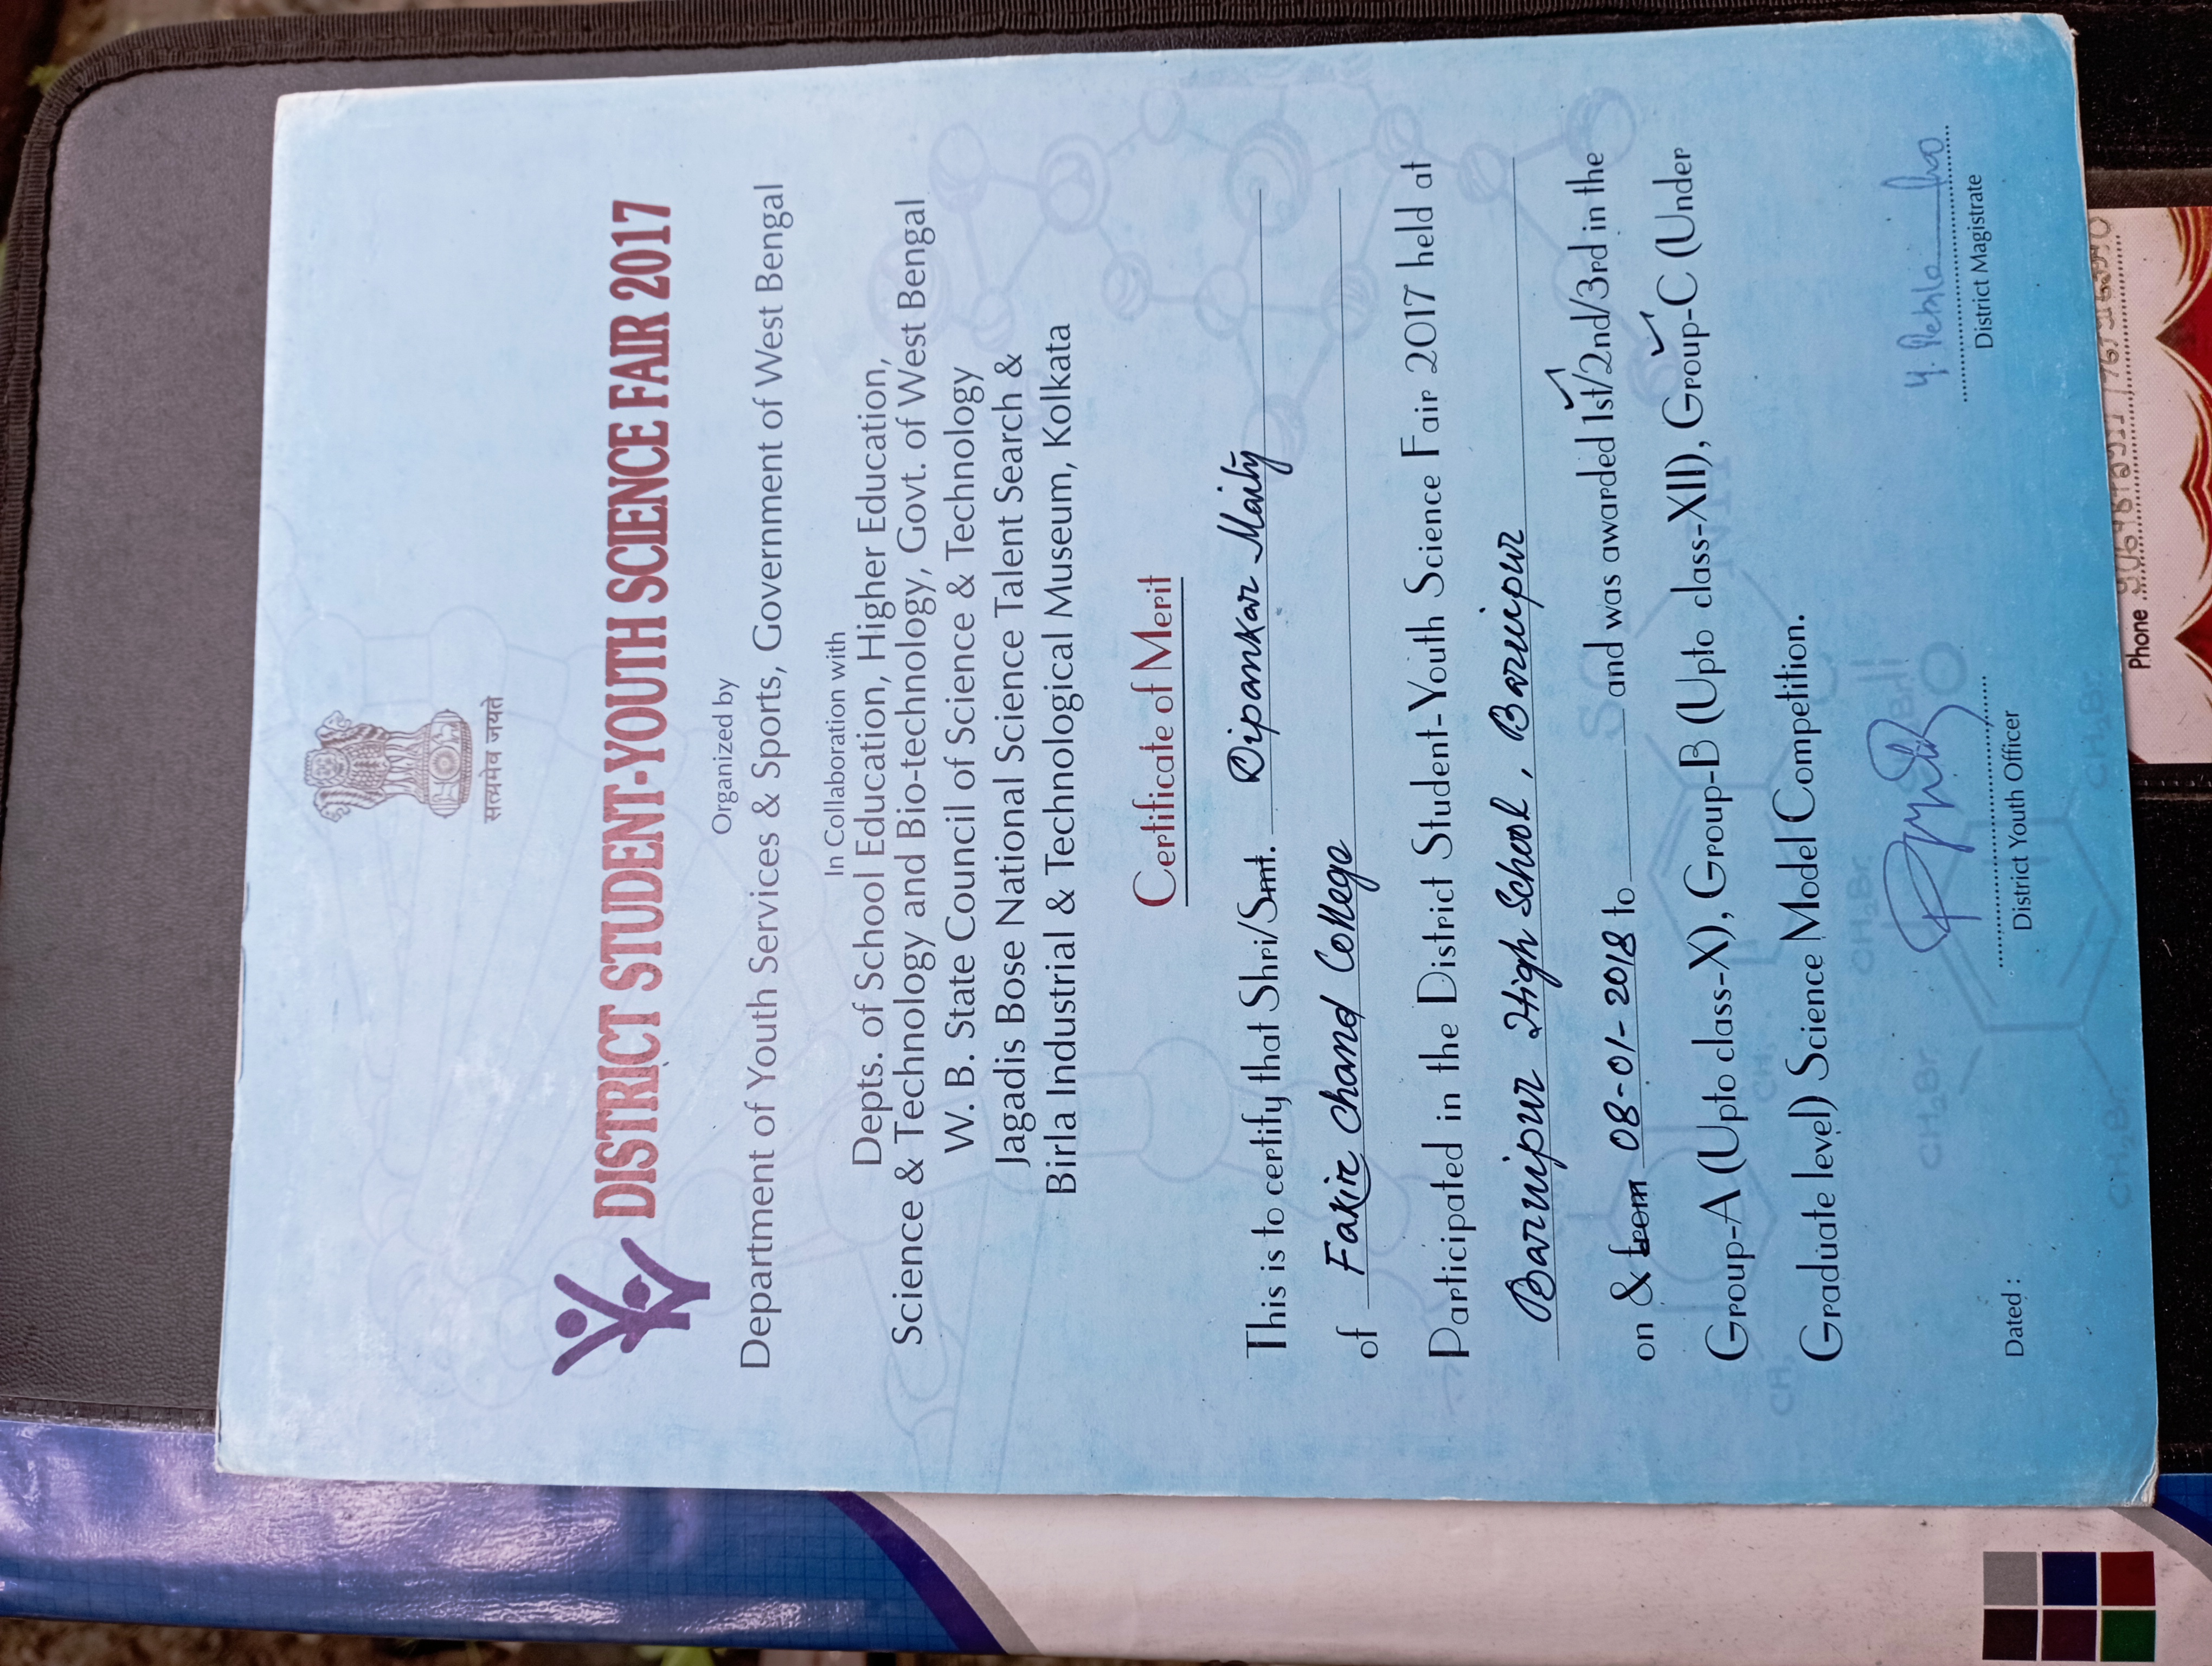 सत्यमेव जयते
DISTRICT STUDENT-YOUTH SCIENCE FAIR 2017
Organized by
Department of Youth Services & Sports, Government of West Bengal
In Collaboration with
Depts. of School Education, Higher Education,
Science & Technology and Bio-technology, Govt. of West Bengal
W. B. State Council of Science & Technology
Jagadis Bose National Science Talent Search &
Birla Industrial & Technological Museum, Kolkata
Certificate of Merit
This is to certify that Shri/Smt. Dipankar Maity
of Fakir Chand College
Participated in the District Student-Youth Science Fair 2017 held at
Baruipur High School, Baruipur
on & from 08-01-2018 to and was awarded 1st/2nd/3rd in the
Group-A (Upto class-X), Group-B (Upto class-XII), Group-C (Under
Graduate level) Science Model Competition.
Dated :
District Youth Officer
District Magistrate
Phone